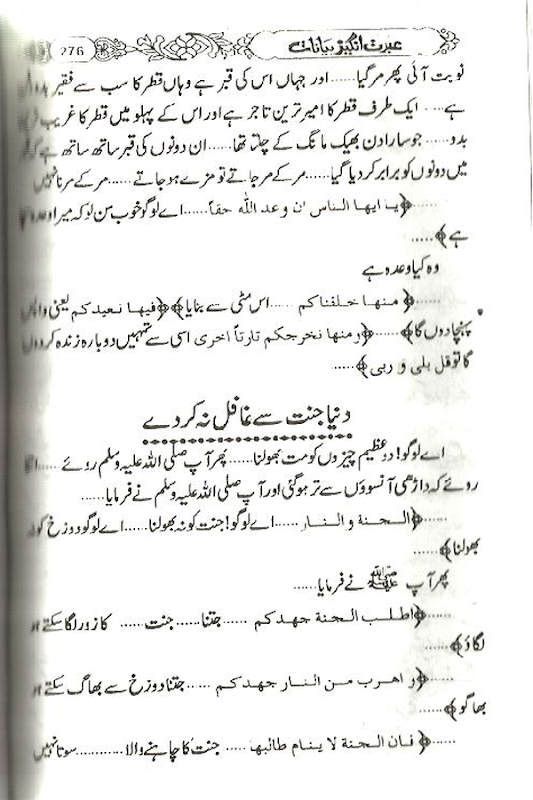 276 عبرت انگیز بیانات
نوبت آئی پھر مر گیا...... اور جہاں اس کی قبر ہے وہاں قطر کا سب سے فقیر بدو
ہے.... ایک طرف قطر کا امیر ترین تاجر ہے اور اس کے پہلو میں قطر کا غریب
بدو...... جو سارا دن بھیک مانگ کے چلتا تھا...... ان دونوں کی قبر ساتھ ساتھ ہے
میں دونوں کو برابر کر دیا گیا...... مر کے مر جاتے تو مزے ہو جاتے...... مر کے مرنا نہیں
......﴿یا ایھا الناس ان وعد اللہ حقا...... اے لوگو خوب سن لو کہ میرا وعدہ
ہے﴾......
وہ کیا وعدہ ہے
......﴿منھا خلقناکم ...... اس مٹی سے بنایا﴾﴿فیھا نعیدکم یعنی واپس
پہنچا دوں گا﴾......﴿ومنھا نخرجکم تارتاً اخری اسی سے تمہیں دوبارہ زندہ کردوں
گا تو قل بلی و ربی﴾......
دنیا جنت سے غافل نہ کردے
اے لوگو! دو عظیم چیزوں کو مت بھولنا...... پھر آپ صلی اللہ علیہ وسلم روئے ......
روئے کہ داڑھی آنسوؤں سے تر ہو گئی اور آپ صلی اللہ علیہ وسلم نے فرمایا......
......﴿الجنة و النار ...... اے لوگو! جنت کو نہ بھولنا...... اے لوگو دوزخ کو نہ
بھولنا﴾......
پھر آپ ﷺ نے فرمایا......
......﴿اطلب الجنة جھدکم ...... جتنا...... جنت ...... کا زور لگا سکتے ہو
لگاؤ﴾......
......﴿و اھرب من النار جھدکم ...... جتنا دوزخ سے بھاگ سکتے ہو
بھاگو﴾......
......﴿فان الجنة لا ینام طالبھا ...... جنت کا چاہنے والا............ سوتا نہیں